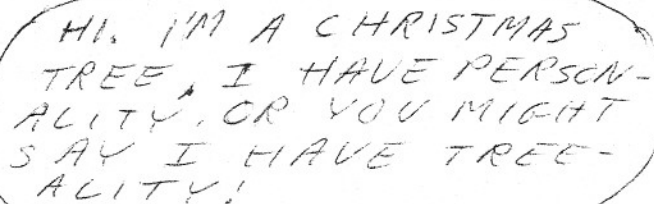 HI. I'M A CHRISTMAS
TREE, I HAVE PERSON-
ALITY, OR YOU MIGHT
SAY I HAVE TREE-
ALITY!